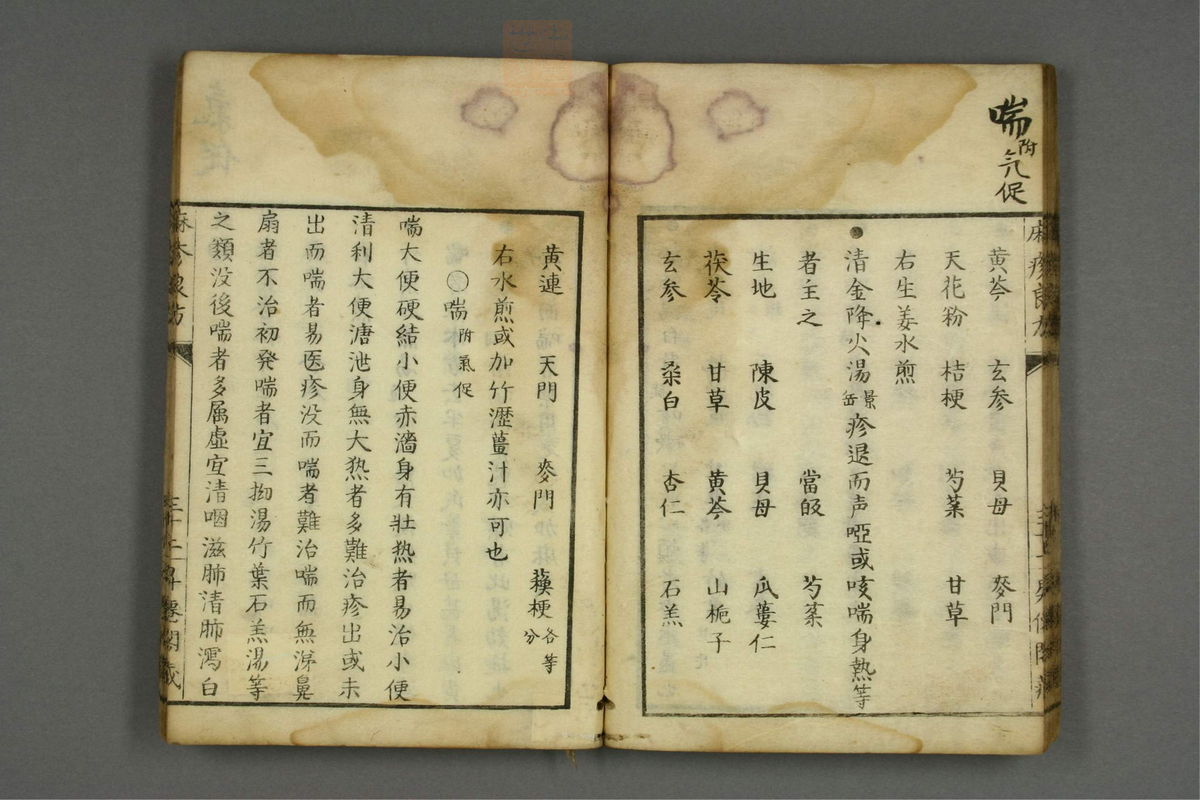 喘附气促
黄芩 玄参 貝母 麥門
天花粉 桔梗 芍薬 甘草
右生姜水煎
清金降火湯景岳疹退而声啞或咳喘身熱等
者主之 當皈 芍薬
生地 陳皮 貝母 瓜蔞仁
茯苓 甘草 黄芩 山梔子
玄参 桒白 杏仁 石羔
黄連 天門 麥門 蘓梗各等分
右水煎或加竹瀝薑汁亦可也
〇喘附氣促
喘大便硬結小便赤濇身有壮热者易治小便
清利大便溏泄身無大热者多難治疹出或未
出而喘者易医疹没而喘者難治喘而無涕鼻
扇者不治初発喘者宜三拗湯竹葉石羔湯等
之類没後喘者多属虚宜清咽滋肺清肺瀉白
麻疹良方